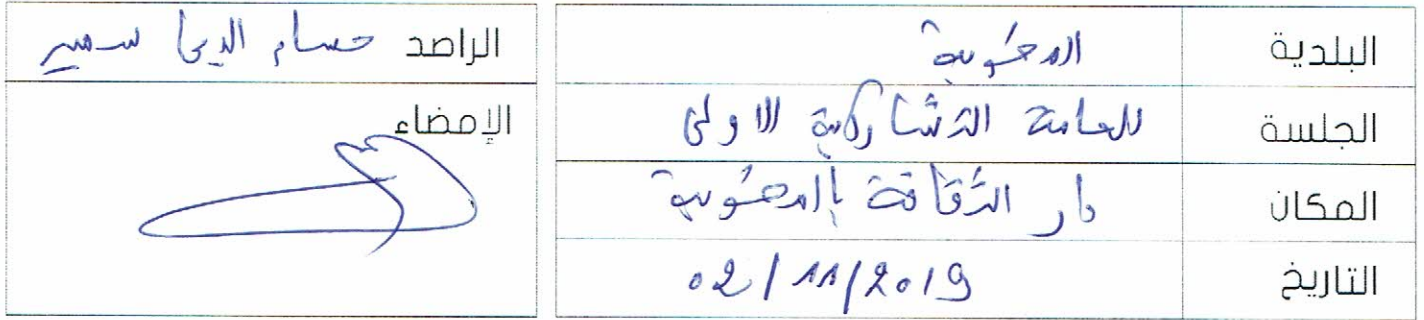 البلدية
الجلسة العامة التشاركية الاولى
المكان دار الثقافة
التاريخ 02/11/2019
الراصد حسام الدين سمير
الإمضاء